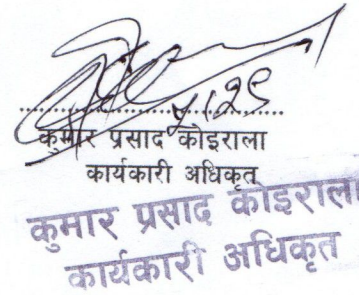 कुमार प्रसाद कोइराला
कार्यकारी अधिकृत
कुमार प्रसाद कोइराला
कार्यकारी अधिकृत